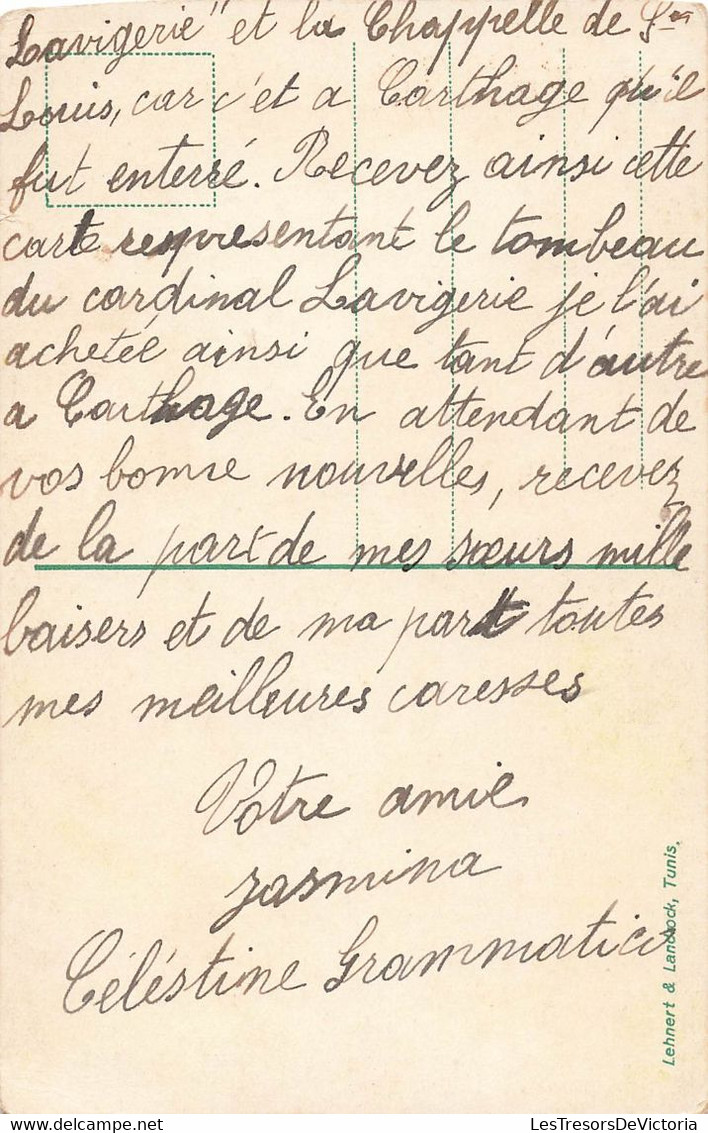 Lavigerie" et la Chappelle de St
Louis, car c'et a Carthage qu'il
fut enterré. Recevez ainsi cette
carte respresentant le tombeau
du cardinal Lavigerie je l'ai
achetéé ainsi que tant d'autre
a Carthage. En attendant de
vos bonne nouvelles, recevez
de la part de mes sœurs mille
baisers et de ma part toutes
mes meilleures caresses
Votre amie
Jasmina
Céléstine Grammatico
Lehnert & Landrock, Tunis.
LesTresorsDeVictoria
delcampe.net